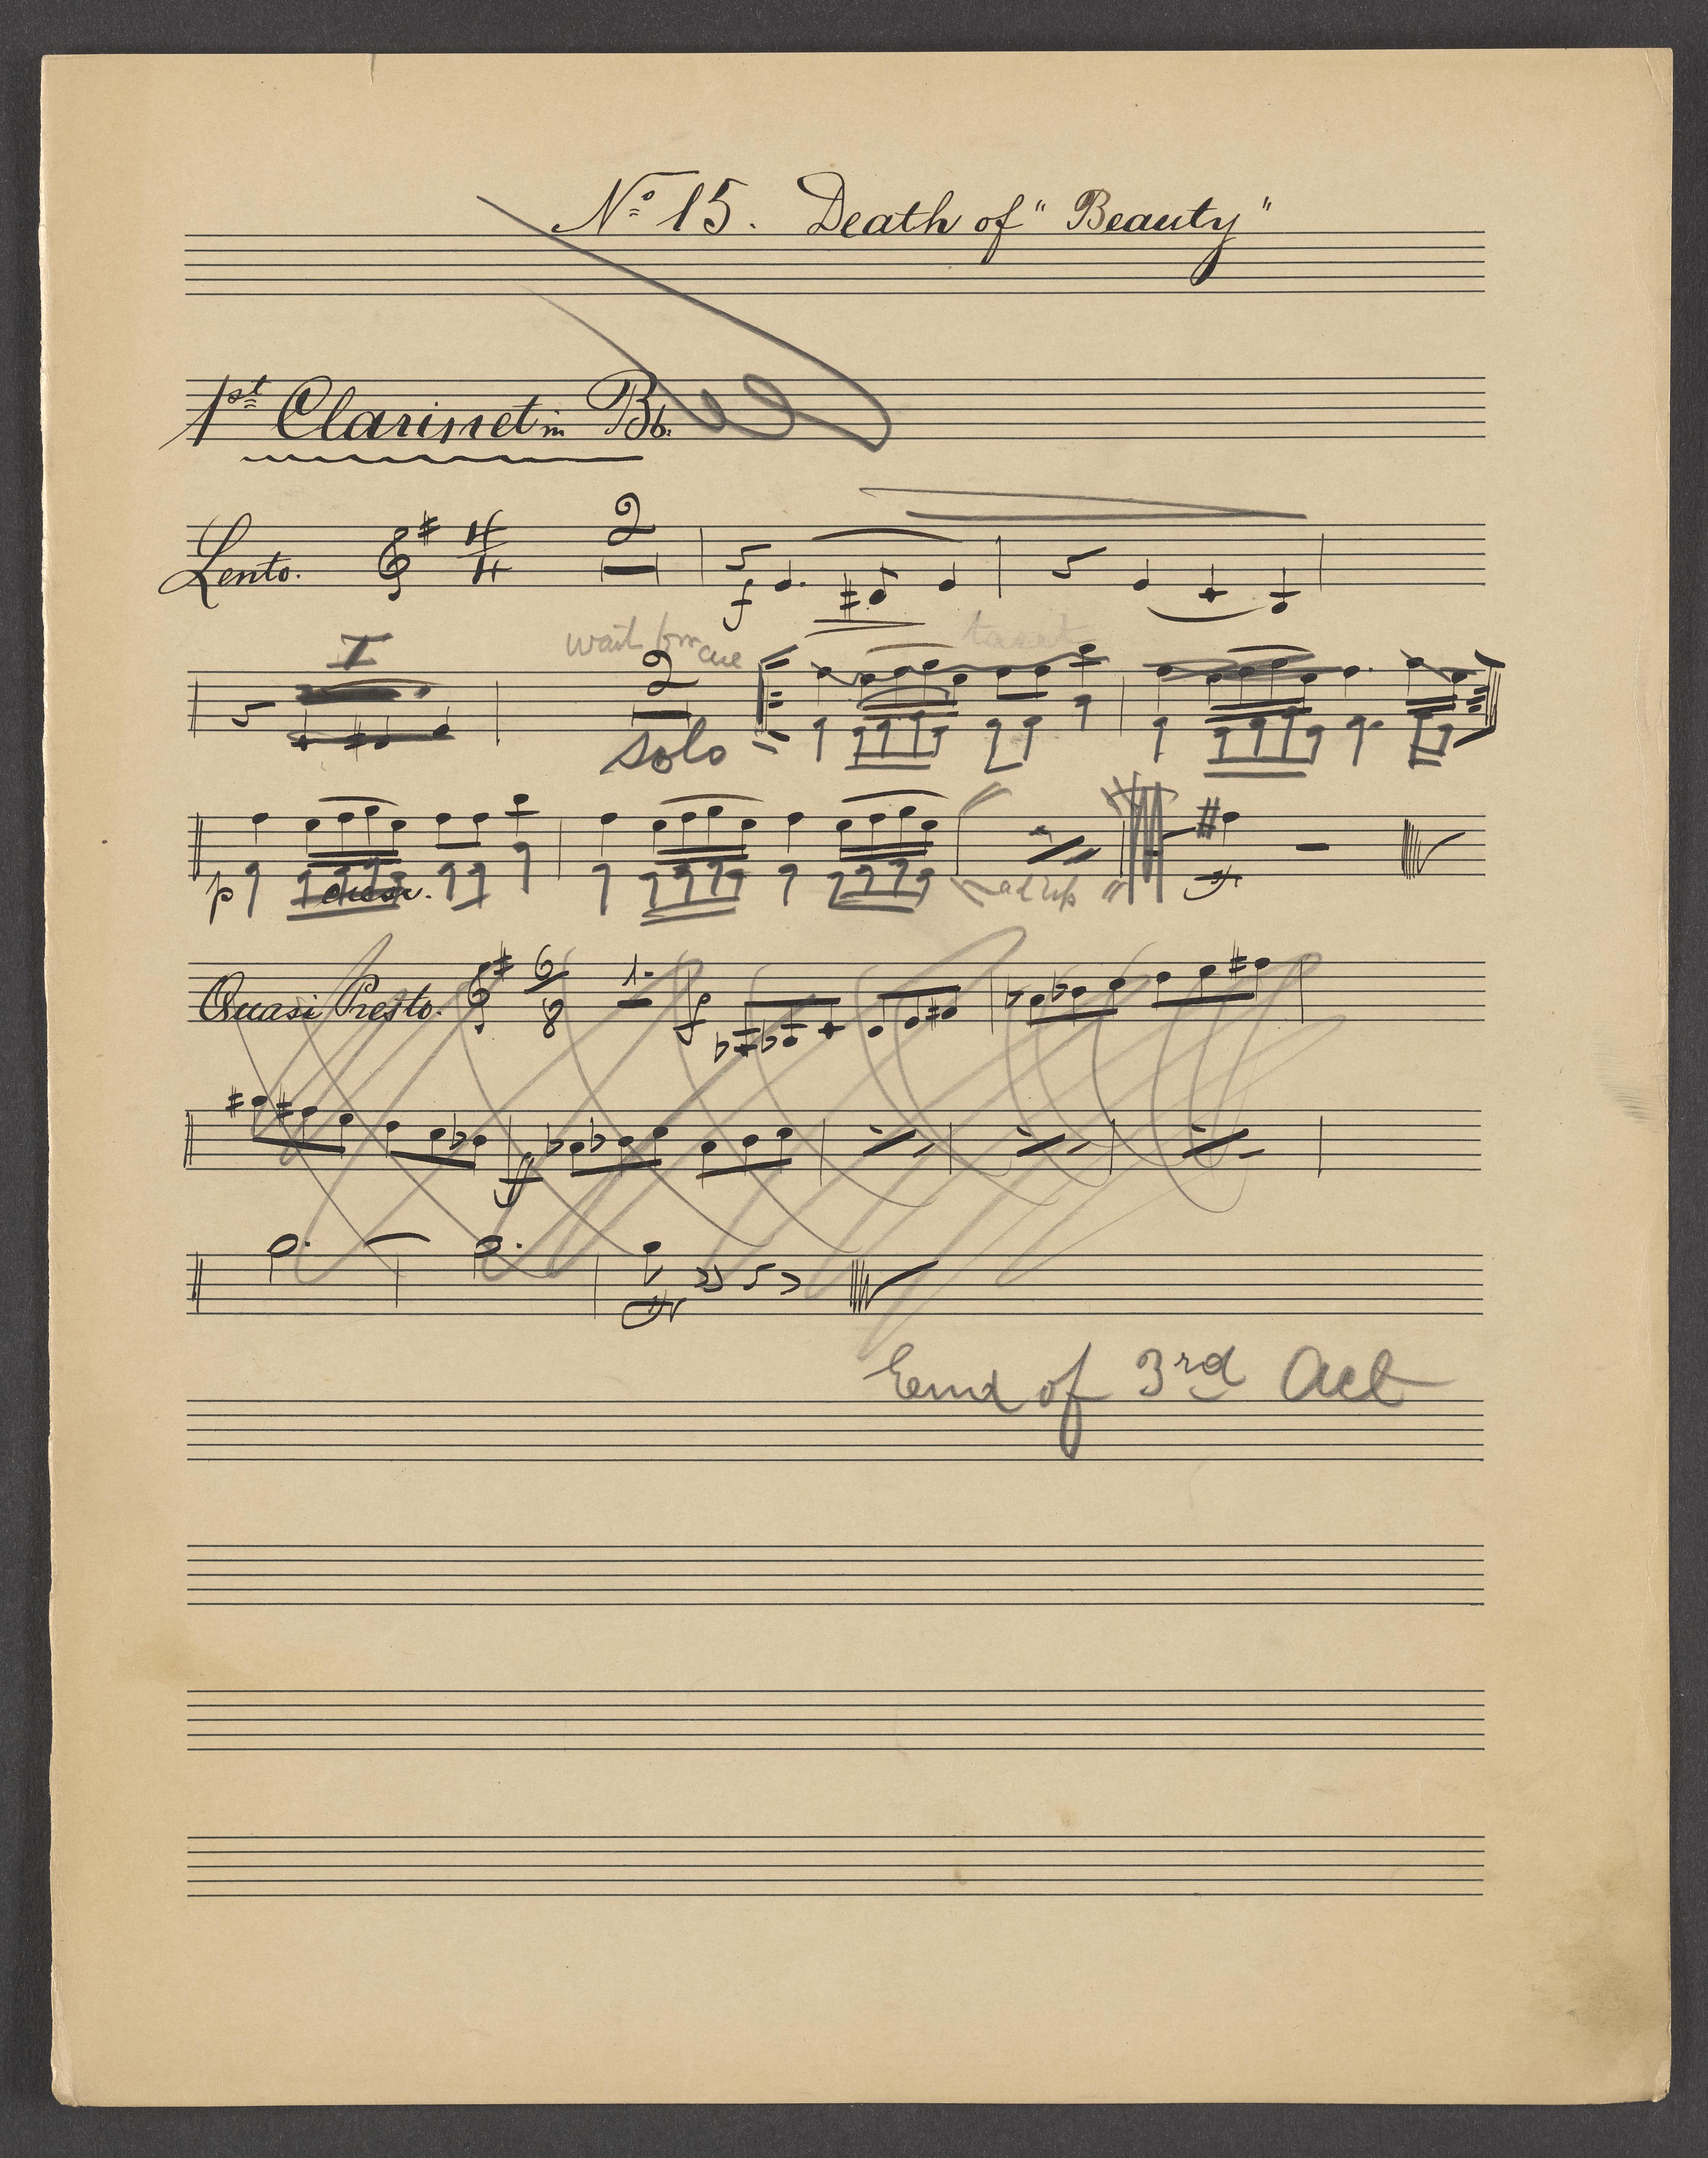 No 15. Death of "Beauty"
1st Clarinet in Bb.
Lento. 4 4 2
f
I wait for cue tacet
2
solo
p cresc.
ad lib
ff
Quasi Presto. 6 8 1. f
ff
End of 3rd Act